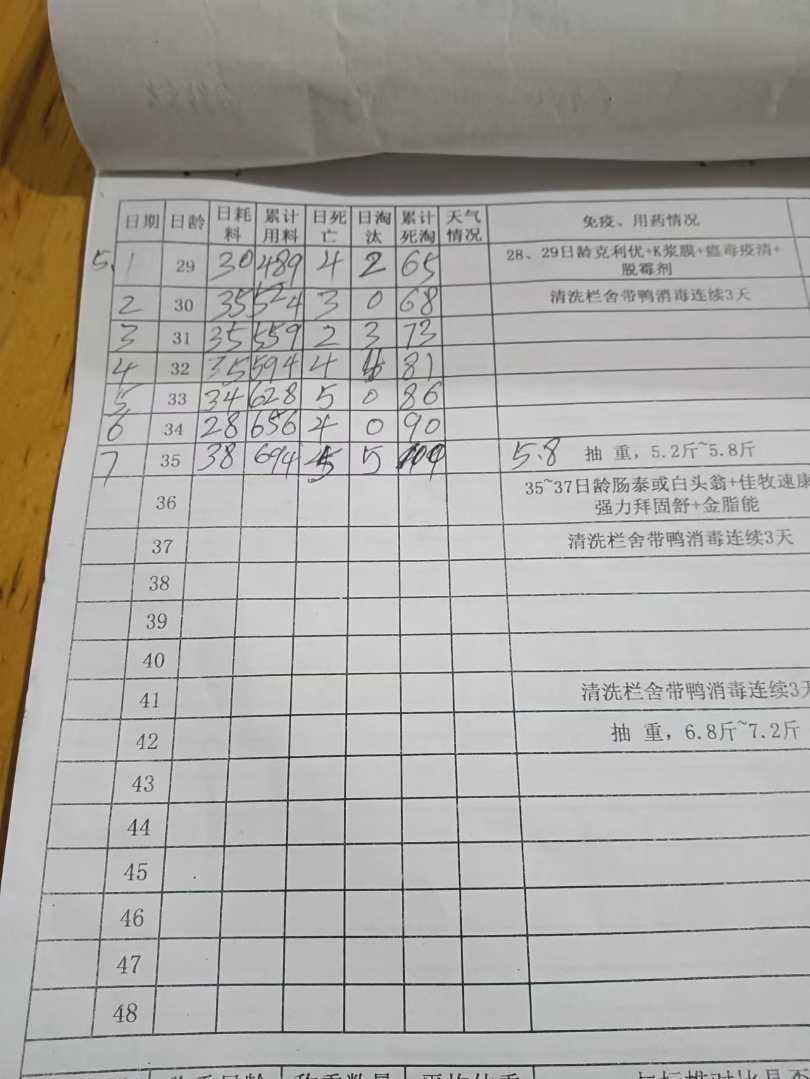 日期 日龄 日耗料 累计用料 日死亡 日淘汰 累计死淘 天气情况 免疫、用药情况
5.1 29 30 489 4 2 65 28、29日龄克利优+K浆膜+瘟毒疫清+
脱霉剂
2 30 35 524 3 0 68 清洗栏舍带鸭消毒连续3天
3 31 35 559 2 3 73
4 32 35 594 4 4 81
5 33 34 628 5 0 86
6 34 28 656 4 0 90
7 35 38 694 5 5 5.8 抽 重，5.2斤~5.8斤
36 35~37日龄肠泰或白头翁+佳牧速康
强力拜固舒+金脂能
37 清洗栏舍带鸭消毒连续3天
38
39
40
41 清洗栏舍带鸭消毒连续3天
42 抽 重，6.8斤~7.2斤
43
44
45
46
47
48